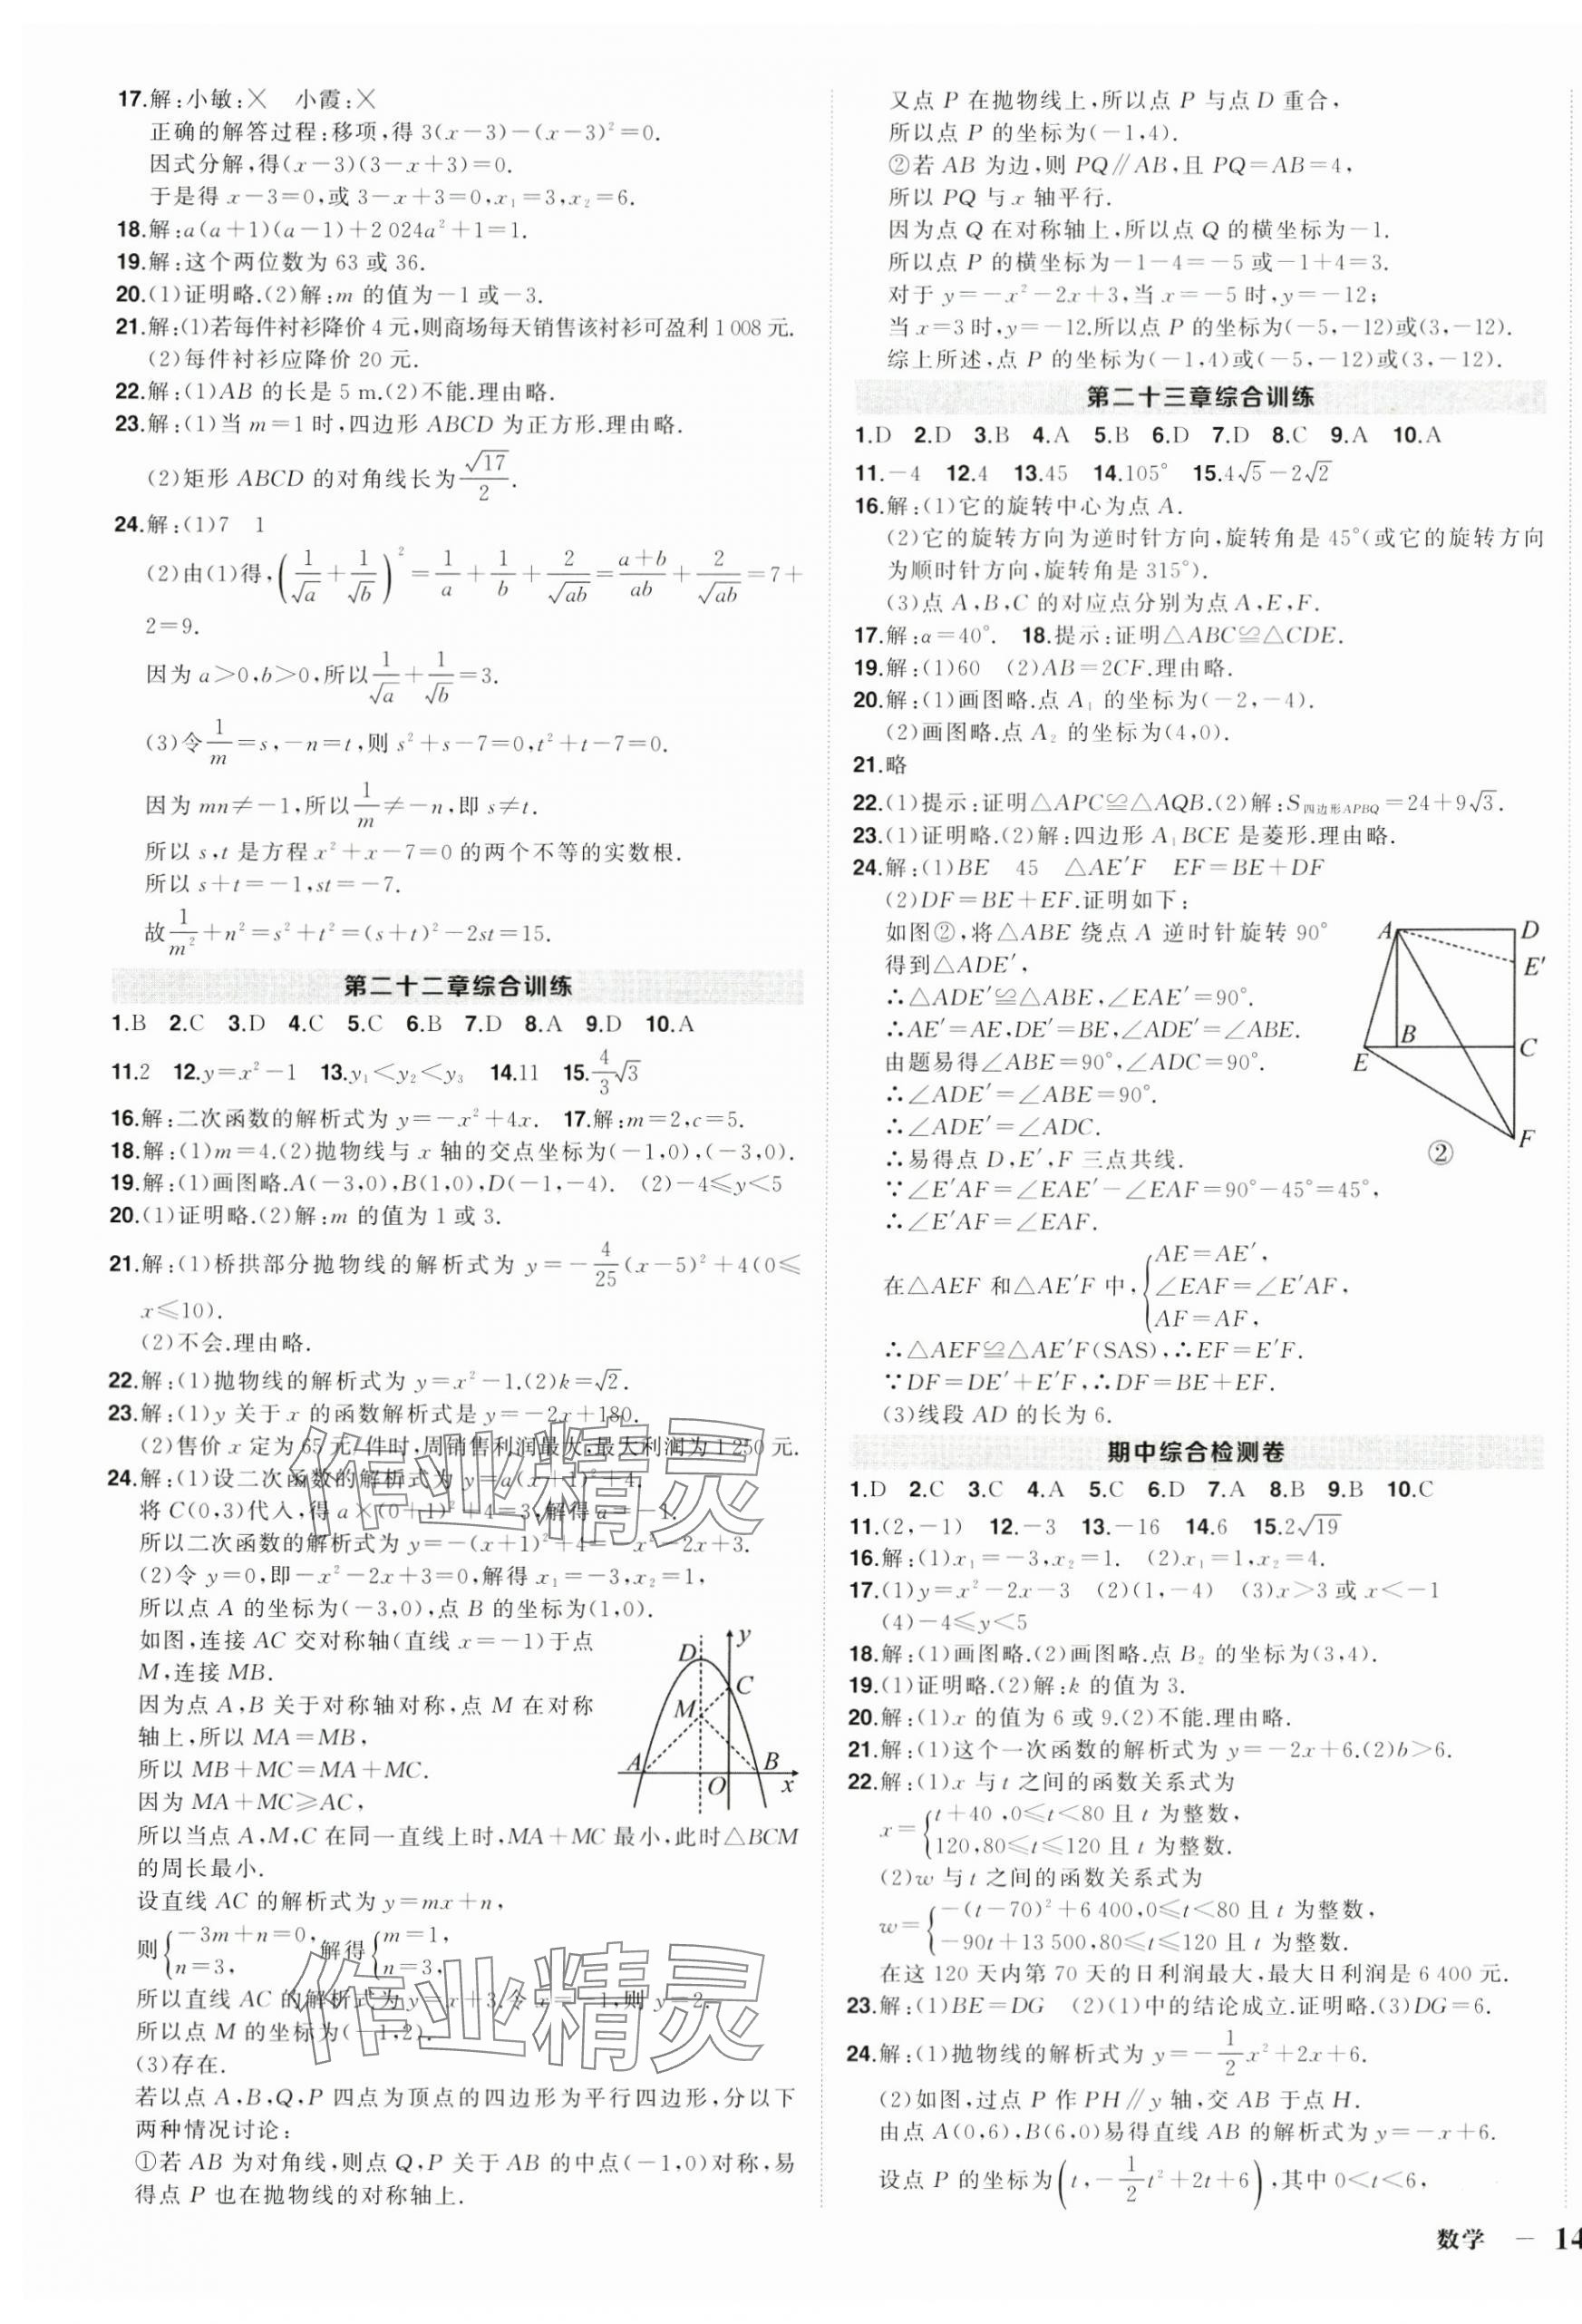 17.解:小敏:╳　小霞:╳
正确的解答过程:移项,得 3(x－3)－(x－3)²＝0.
因式分解,得(x－3)(3－x＋3)＝0.
于是得 x－3＝0,或 3－x＋3＝0,x₁＝3,x₂＝6.
18.解:a(a＋1)(a－1)＋2 024a²＋1＝1.
19.解:这个两位数为 63 或 36.
20.(1)证明略.(2)解:m 的值为－1 或－3.
21.解:(1)若每件衬衫降价 4 元,则商场每天销售该衬衫可盈利 1 008 元.
(2)每件衬衫应降价 20 元.
22.解:(1)AB 的长是 5 m.(2)不能.理由略.
23.解:(1)当 m＝1 时,四边形 ABCD 为正方形.理由略.
(2)矩形 ABCD 的对角线长为√17/2.
24.解:(1)7　1
(2)由(1)得,(1/√a＋1/√b)²＝1/a＋1/b＋2/√ab＝(a＋b)/ab＋2/√ab＝7＋
2＝9.
因为 a＞0,b＞0,所以1/√a＋1/√b＝3.
(3)令1/m＝s,－n＝t,则 s²＋s－7＝0,t²＋t－7＝0.
因为 mn≠－1,所以1/m≠－n,即 s≠t.
所以 s,t 是方程 x²＋x－7＝0 的两个不等的实数根.
所以 s＋t＝－1,st＝－7.
故1/m²＋n²＝s²＋t²＝(s＋t)²－2st＝15.
第二十二章综合训练
1.B　2.C　3.D　4.C　5.C　6.B　7.D　8.A　9.D　10.A
11.2　12.y＝x²－1　13.y₁＜y₂＜y₃　14.11　15.4/3√3
16.解:二次函数的解析式为 y＝－x²＋4x.　17.解:m＝2,c＝5.
18.解:(1)m＝4.(2)抛物线与 x 轴的交点坐标为(－1,0),(－3,0).
19.解:(1)画图略.A(－3,0),B(1,0),D(－1,－4).　(2)－4≤y＜5
20.(1)证明略.(2)解:m 的值为 1 或 3.
21.解:(1)桥拱部分抛物线的解析式为 y＝－4/25(x－5)²＋4(0≤
x≤10).
(2)不会.理由略.
22.解:(1)抛物线的解析式为 y＝x²－1.(2)k＝√2.
23.解:(1)y 关于 x 的函数解析式是 y＝－2x＋180.
(2)售价 x 定为 65 元/件时,周销售利润最大,最大利润为 1 250 元.
24.解:(1)设二次函数的解析式为 y＝a(x＋1)²＋4.
将 C(0,3)代入,得 a×(0＋1)²＋4＝3,解得 a＝－1.
所以二次函数的解析式为 y＝－(x＋1)²＋4＝－x²－2x＋3.
(2)令 y＝0,即－x²－2x＋3＝0,解得 x₁＝－3,x₂＝1,
所以点 A 的坐标为(－3,0),点 B 的坐标为(1,0).
如图,连接 AC 交对称轴(直线 x＝－1)于点
M,连接 MB.
因为点 A,B 关于对称轴对称,点 M 在对称
轴上,所以 MA＝MB,
所以 MB＋MC＝MA＋MC.
因为 MA＋MC≥AC,
D y C M A O B x
所以当点 A,M,C 在同一直线上时,MA＋MC 最小,此时△BCM
的周长最小.
设直线 AC 的解析式为 y＝mx＋n,
则{－3m＋n＝0,n＝3,解得{m＝1,n＝3,
所以直线 AC 的解析式为 y＝x＋3.令 x＝－1,则 y＝2.
所以点 M 的坐标为(－1,2).
(3)存在.
若以点 A,B,Q,P 四点为顶点的四边形为平行四边形,分以下
两种情况讨论:
①若 AB 为对角线,则点 Q,P 关于 AB 的中点(－1,0)对称,易
得点 P 也在抛物线的对称轴上.
作业精灵
作业精灵
又点 P 在抛物线上,所以点 P 与点 D 重合,
所以点 P 的坐标为(－1,4).
②若 AB 为边,则 PQ∥AB,且 PQ＝AB＝4,
所以 PQ 与 x 轴平行.
因为点 Q 在对称轴上,所以点 Q 的横坐标为－1.
所以点 P 的横坐标为－1－4＝－5 或－1＋4＝3.
对于 y＝－x²－2x＋3,当 x＝－5 时,y＝－12;
当 x＝3 时,y＝－12.所以点 P 的坐标为(－5,－12)或(3,－12).
综上所述,点 P 的坐标为(－1,4)或(－5,－12)或(3,－12).
第二十三章综合训练
1.D　2.D　3.B　4.A　5.B　6.D　7.D　8.C　9.A　10.A
11.－4　12.4　13.45　14.105°　15.4√5－2√2
16.解:(1)它的旋转中心为点 A.
(2)它的旋转方向为逆时针方向,旋转角是 45°(或它的旋转方向
为顺时针方向,旋转角是 315°).
(3)点 A,B,C 的对应点分别为点 A,E,F.
17.解:α＝40°.　18.提示:证明△ABC≌△CDE.
19.解:(1)60　(2)AB＝2CF.理由略.
20.解:(1)画图略.点 A₁ 的坐标为(－2,－4).
(2)画图略.点 A₂ 的坐标为(4,0).
21.略
22.(1)提示:证明△APC≌△AQB.(2)解:S四边形APBQ＝24＋9√3.
23.(1)证明略.(2)解:四边形 A₁BCE 是菱形.理由略.
24.解:(1)BE　45　△AE′F　EF＝BE＋DF
(2)DF＝BE＋EF.证明如下:
如图②,将△ABE 绕点 A 逆时针旋转 90°
得到△ADE′,
∴△ADE′≌△ABE,∠EAE′＝90°.
∴AE′＝AE,DE′＝BE,∠ADE′＝∠ABE.
由题易得∠ABE＝90°,∠ADC＝90°.
∴∠ADE′＝∠ABE＝90°.
∴∠ADE′＝∠ADC.
∴易得点 D,E′,F 三点共线.
A D E′ B C E F ②
∵∠E′AF＝∠EAE′－∠EAF＝90°－45°＝45°,
∴∠E′AF＝∠EAF.
在△AEF 和△AE′F 中,{AE＝AE′,∠EAF＝∠E′AF,AF＝AF,
∴△AEF≌△AE′F(SAS),∴EF＝E′F.
∵DF＝DE′＋E′F,∴DF＝BE＋EF.
(3)线段 AD 的长为 6.
期中综合检测卷
1.D　2.C　3.C　4.A　5.C　6.D　7.A　8.B　9.B　10.C
11.(2,－1)　12.－3　13.－16　14.6　15.2√19
16.解:(1)x₁＝－3,x₂＝1.　(2)x₁＝1,x₂＝4.
17.(1)y＝x²－2x－3　(2)(1,－4)　(3)x＞3 或 x＜－1
(4)－4≤y＜5
18.解:(1)画图略.(2)画图略.点 B₂ 的坐标为(3,4).
19.(1)证明略.(2)解:k 的值为 3.
20.解:(1)x 的值为 6 或 9.(2)不能.理由略.
21.解:(1)这个一次函数的解析式为 y＝－2x＋6.(2)b＞6.
22.解:(1)x 与 t 之间的函数关系式为
x＝{t＋40,0≤t＜80 且 t 为整数,
120,80≤t≤120 且 t 为整数.
(2)w 与 t 之间的函数关系式为
w＝{－(t－70)²＋6 400,0≤t＜80 且 t 为整数,
－90t＋13 500,80≤t≤120 且 t 为整数.
在这 120 天内第 70 天的日利润最大,最大日利润是 6 400 元.
23.解:(1)BE＝DG　(2)(1)中的结论成立.证明略.(3)DG＝6.
24.解:(1)抛物线的解析式为 y＝－1/2x²＋2x＋6.
(2)如图,过点 P 作 PH∥y 轴,交 AB 于点 H.
由点 A(0,6),B(6,0)易得直线 AB 的解析式为 y＝－x＋6.
设点 P 的坐标为(t,－1/2t²＋2t＋6),其中 0＜t＜6,
数学　－　14